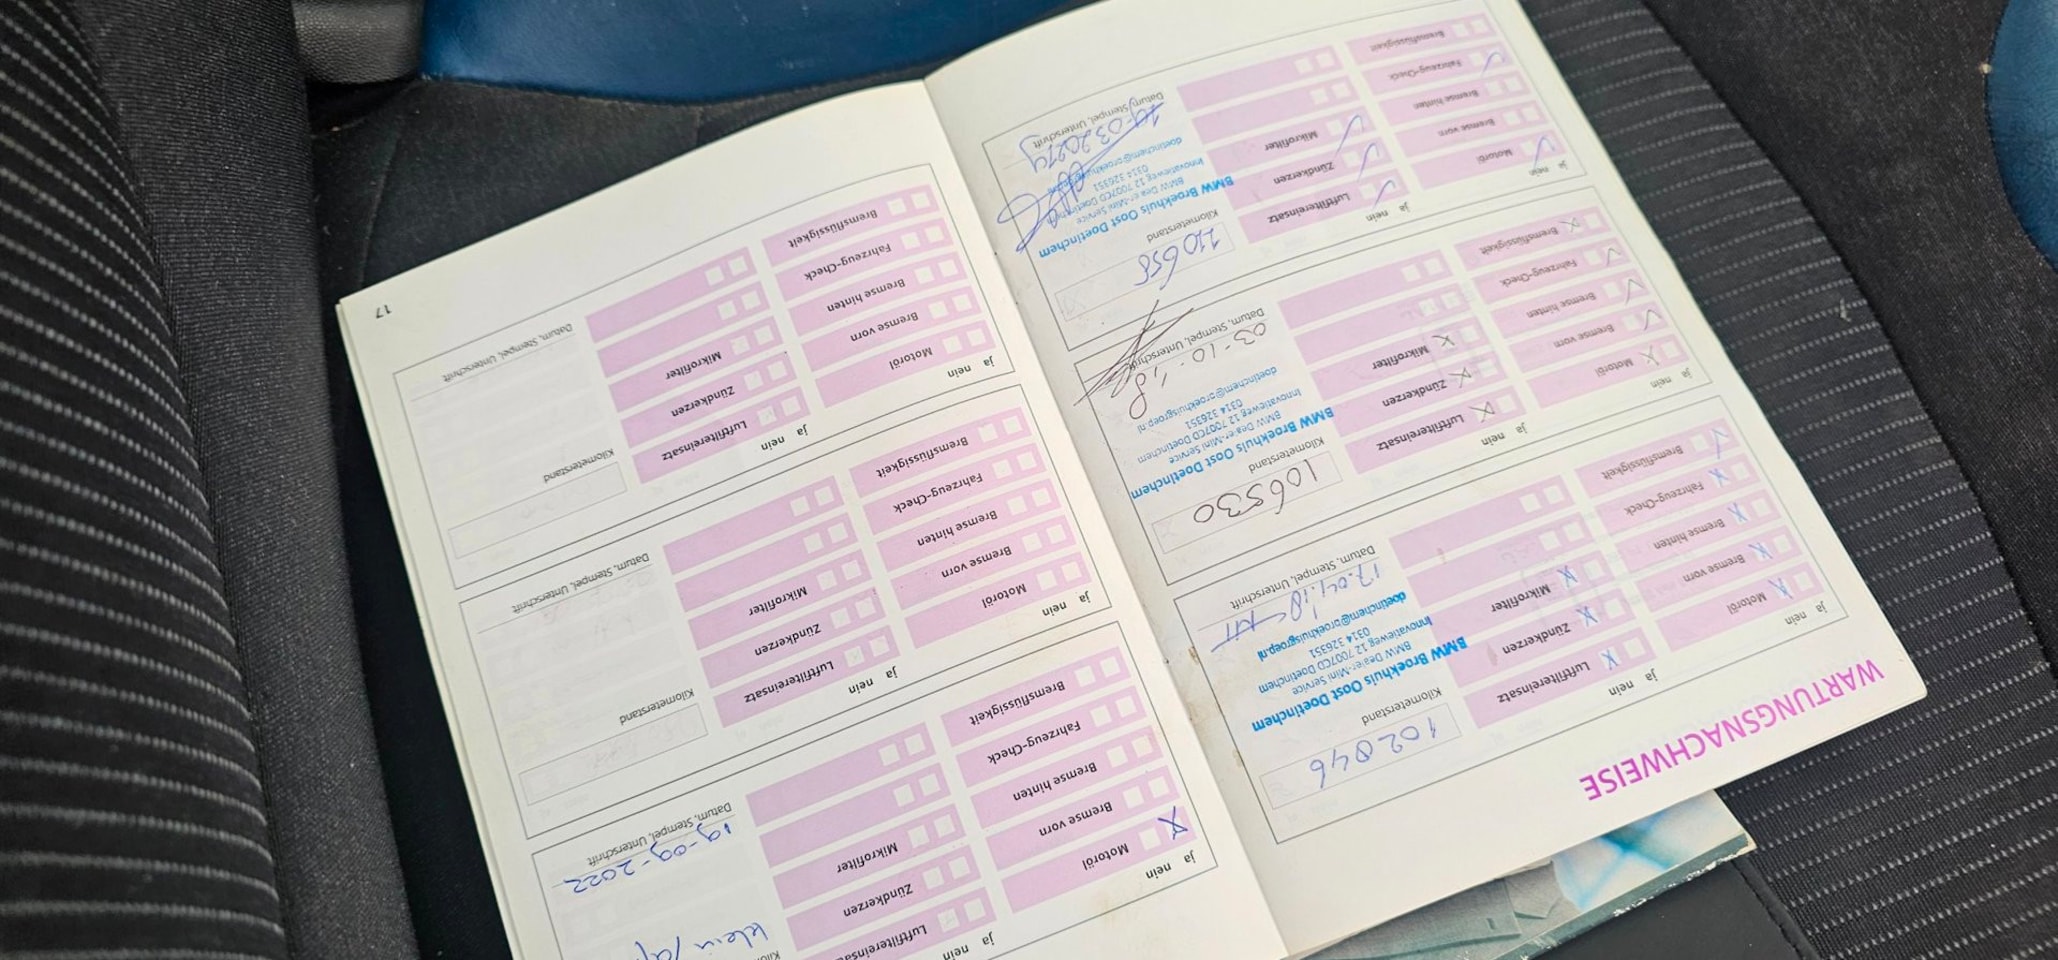 WARTUNGSNACHWEISE
ja nein
Motoröl
Bremse vorn
Bremse hinten
Fahrzeug-Check
Bremsflüssigkeit
ja nein
Luftfiltereinsatz
Zündkerzen
Mikrofilter
Kilometerstand
102846
BMW Broekhuis Oost Doetinchem
BMW Dealer-Mini Service
Innovatieweg 12 7007CD Doetinchem
0314 326351
doetinchem@broekhuisgroep.nl
Datum, Stempel, Unterschrift
ja nein
Motoröl
Bremse vorn
Bremse hinten
Fahrzeug-Check
Bremsflüssigkeit
ja nein
Luftfiltereinsatz
Zündkerzen
Mikrofilter
Kilometerstand
106530
BMW Broekhuis Oost Doetinchem
BMW Dealer-Mini Service
Innovatieweg 12 7007CD Doetinchem
0314 326351
doetinchem@broekhuisgroep.nl
Datum, Stempel, Unterschrift
ja nein
Motoröl
Bremse vorn
Bremse hinten
Fahrzeug-Check
Bremsflüssigkeit
ja nein
Luftfiltereinsatz
Zündkerzen
Mikrofilter
Kilometerstand
110658
BMW Broekhuis Oost Doetinchem
BMW Dealer-Mini Service
Innovatieweg 12 7007CD Doetinchem
0314 326351
Datum, Stempel, Unterschrift
ja nein
Motoröl
Bremse vorn
Bremse hinten
Fahrzeug-Check
Bremsflüssigkeit
ja nein
Luftfiltereinsatz
Zündkerzen
Mikrofilter
klein
19-09-2022
Datum, Stempel, Unterschrift
ja nein
Motoröl
Bremse vorn
Bremse hinten
Fahrzeug-Check
Bremsflüssigkeit
ja nein
Luftfiltereinsatz
Zündkerzen
Mikrofilter
Kilometerstand
Datum, Stempel, Unterschrift
ja nein
Motoröl
Bremse vorn
Bremse hinten
Fahrzeug-Check
Bremsflüssigkeit
ja nein
Luftfiltereinsatz
Zündkerzen
Mikrofilter
Kilometerstand
Datum, Stempel, Unterschrift
17